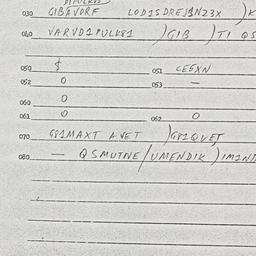 030 GIBAVORF LOD1SDRESJ1N23X )K
040 VARVD1PULK81 )GIB )TI QS
050 $ 051 CE5XN
052 0 053 —
060 0
061 0 062 0
070 G81MAXT AVET )G81QVET
080 — QSMUTNE/UMENDIK)IM1NI